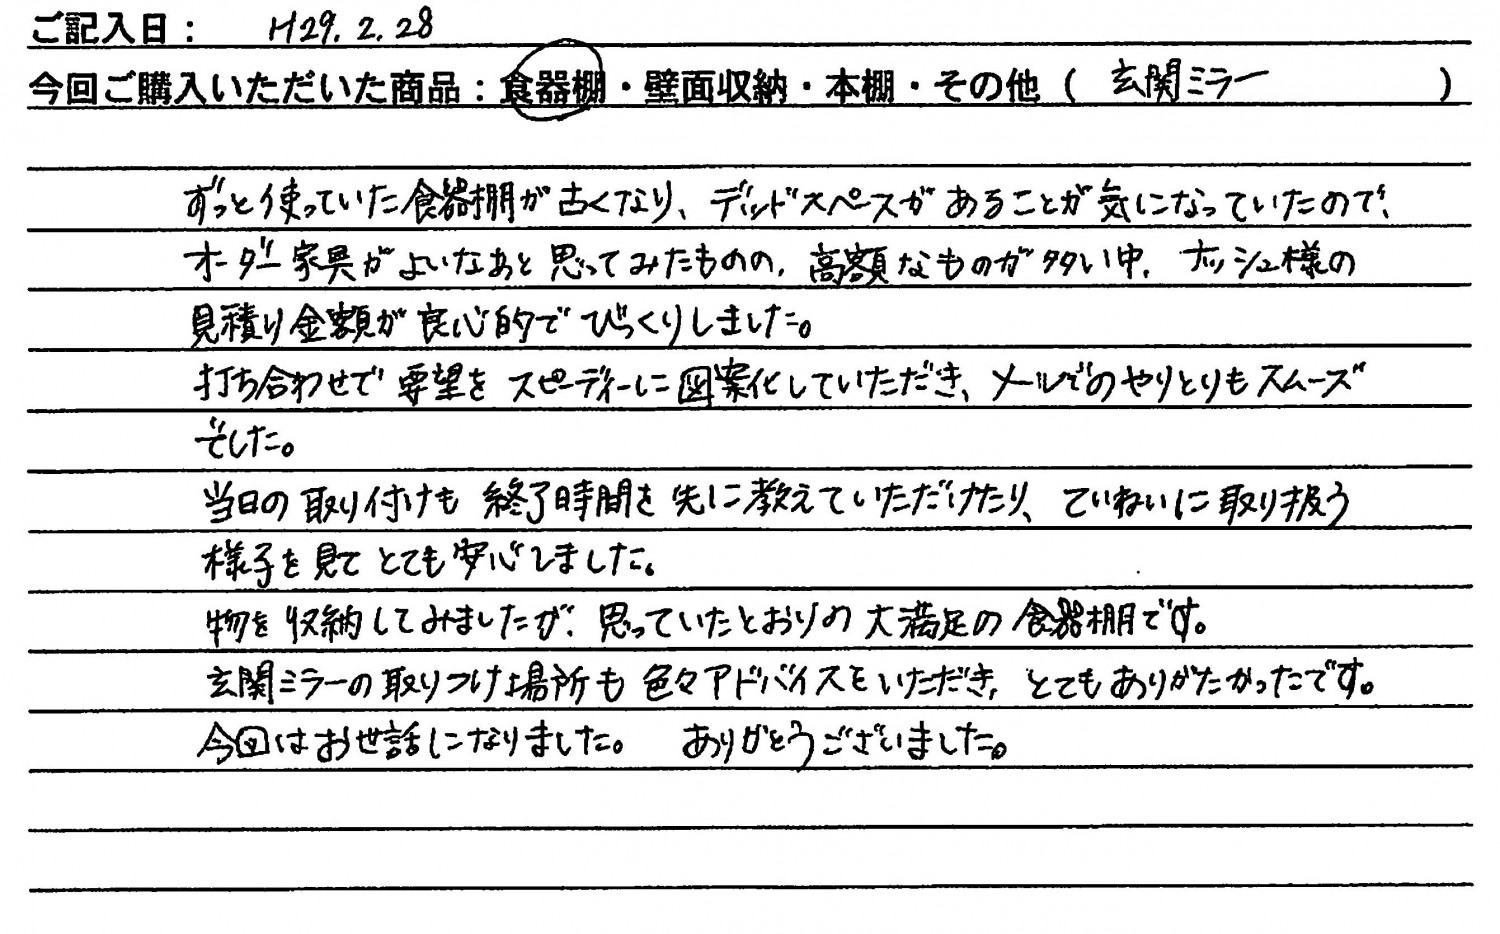 ご記入日： H29.2.28
今回ご購入いただいた商品：食器棚・壁面収納・本棚・その他（ 玄関ミラー ）
ずっと使っていた食器棚が古くなり、デッドスペースがあることが気になっていたので、
オーダー家具がよいなあと思ってみたものの、高額なものが多い中、ホッシュ様の
見積り金額が良心的でびっくりしました。
打ち合わせで要望をスピーディーに図案化していただき、メールでのやりとりもスムーズ
でした。
当日の取り付けも終了時間を先に教えていただけたり、ていねいに取り扱う
様子を見てとても安心しました。
物を収納してみましたが、思っていたとおりの大満足の食器棚です。
玄関ミラーの取りつけ場所も色々アドバイスをいただき、とてもありがたかったです。
今回はお世話になりました。 ありがとうございました。